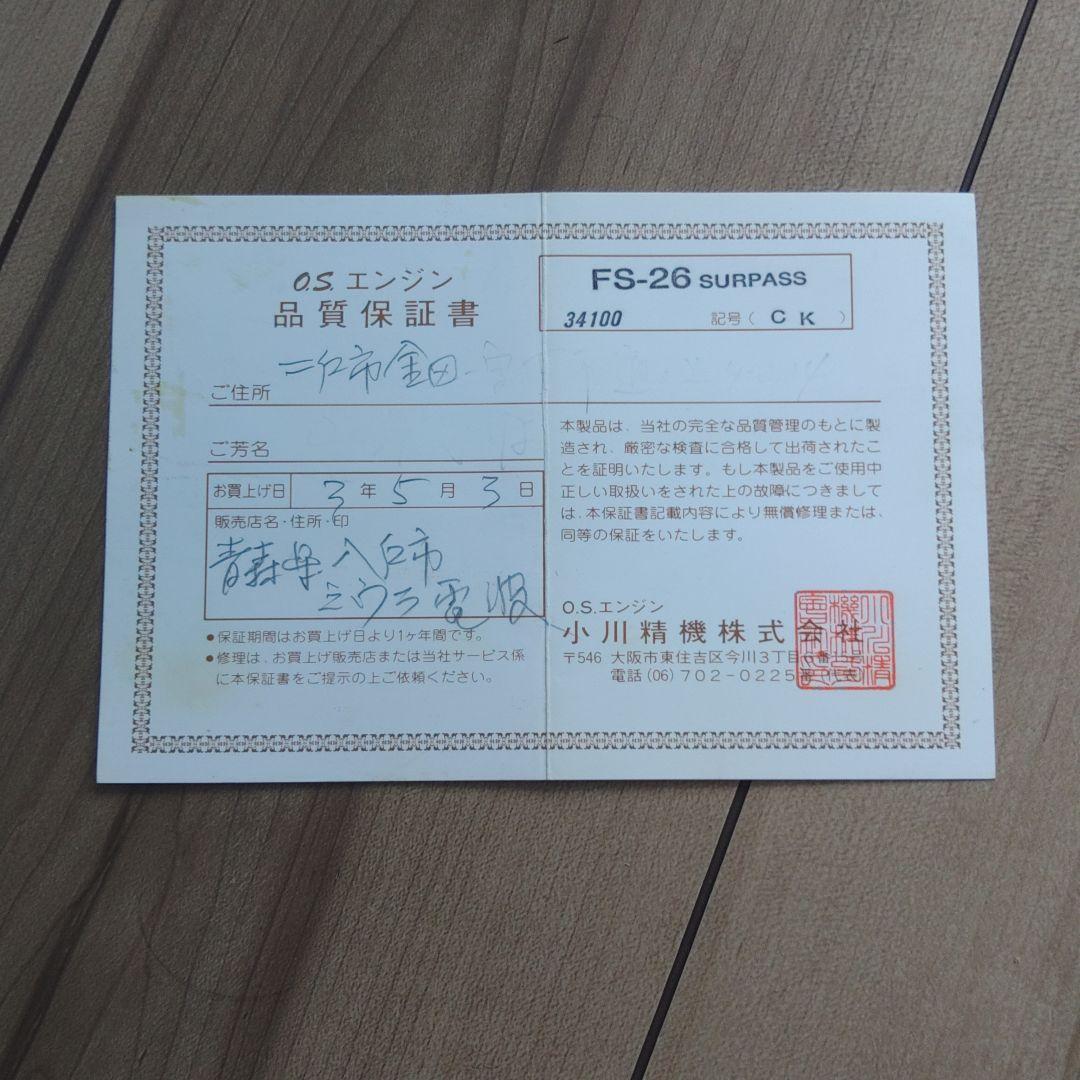 O.S. エンジン
品質保証書
FS-26 SURPASS
34100 記号( C K )
二戸市金田
ご住所
ご芳名
お買上げ日 3年 5月 3日
販売店名・住所・印
青森県 八戸市
ミウラ電波
●保証期間はお買上げ日より1ヶ年間です。
●修理は、お買上げ販売店または当社サービス係
に本保証書をご提示の上ご依頼ください。
本製品は、当社の完全な品質管理のもとに製
造され、厳密な検査に合格して出荷されたこ
とを証明いたします。もし本製品をご使用中
正しい取扱いをされた上の故障につきまして
は、本保証書記載内容により無償修理または、
同等の保証をいたします。
O.S.エンジン
小川精機株式会社
〒546 大阪市東住吉区今川3丁目
電話(06)702-0225